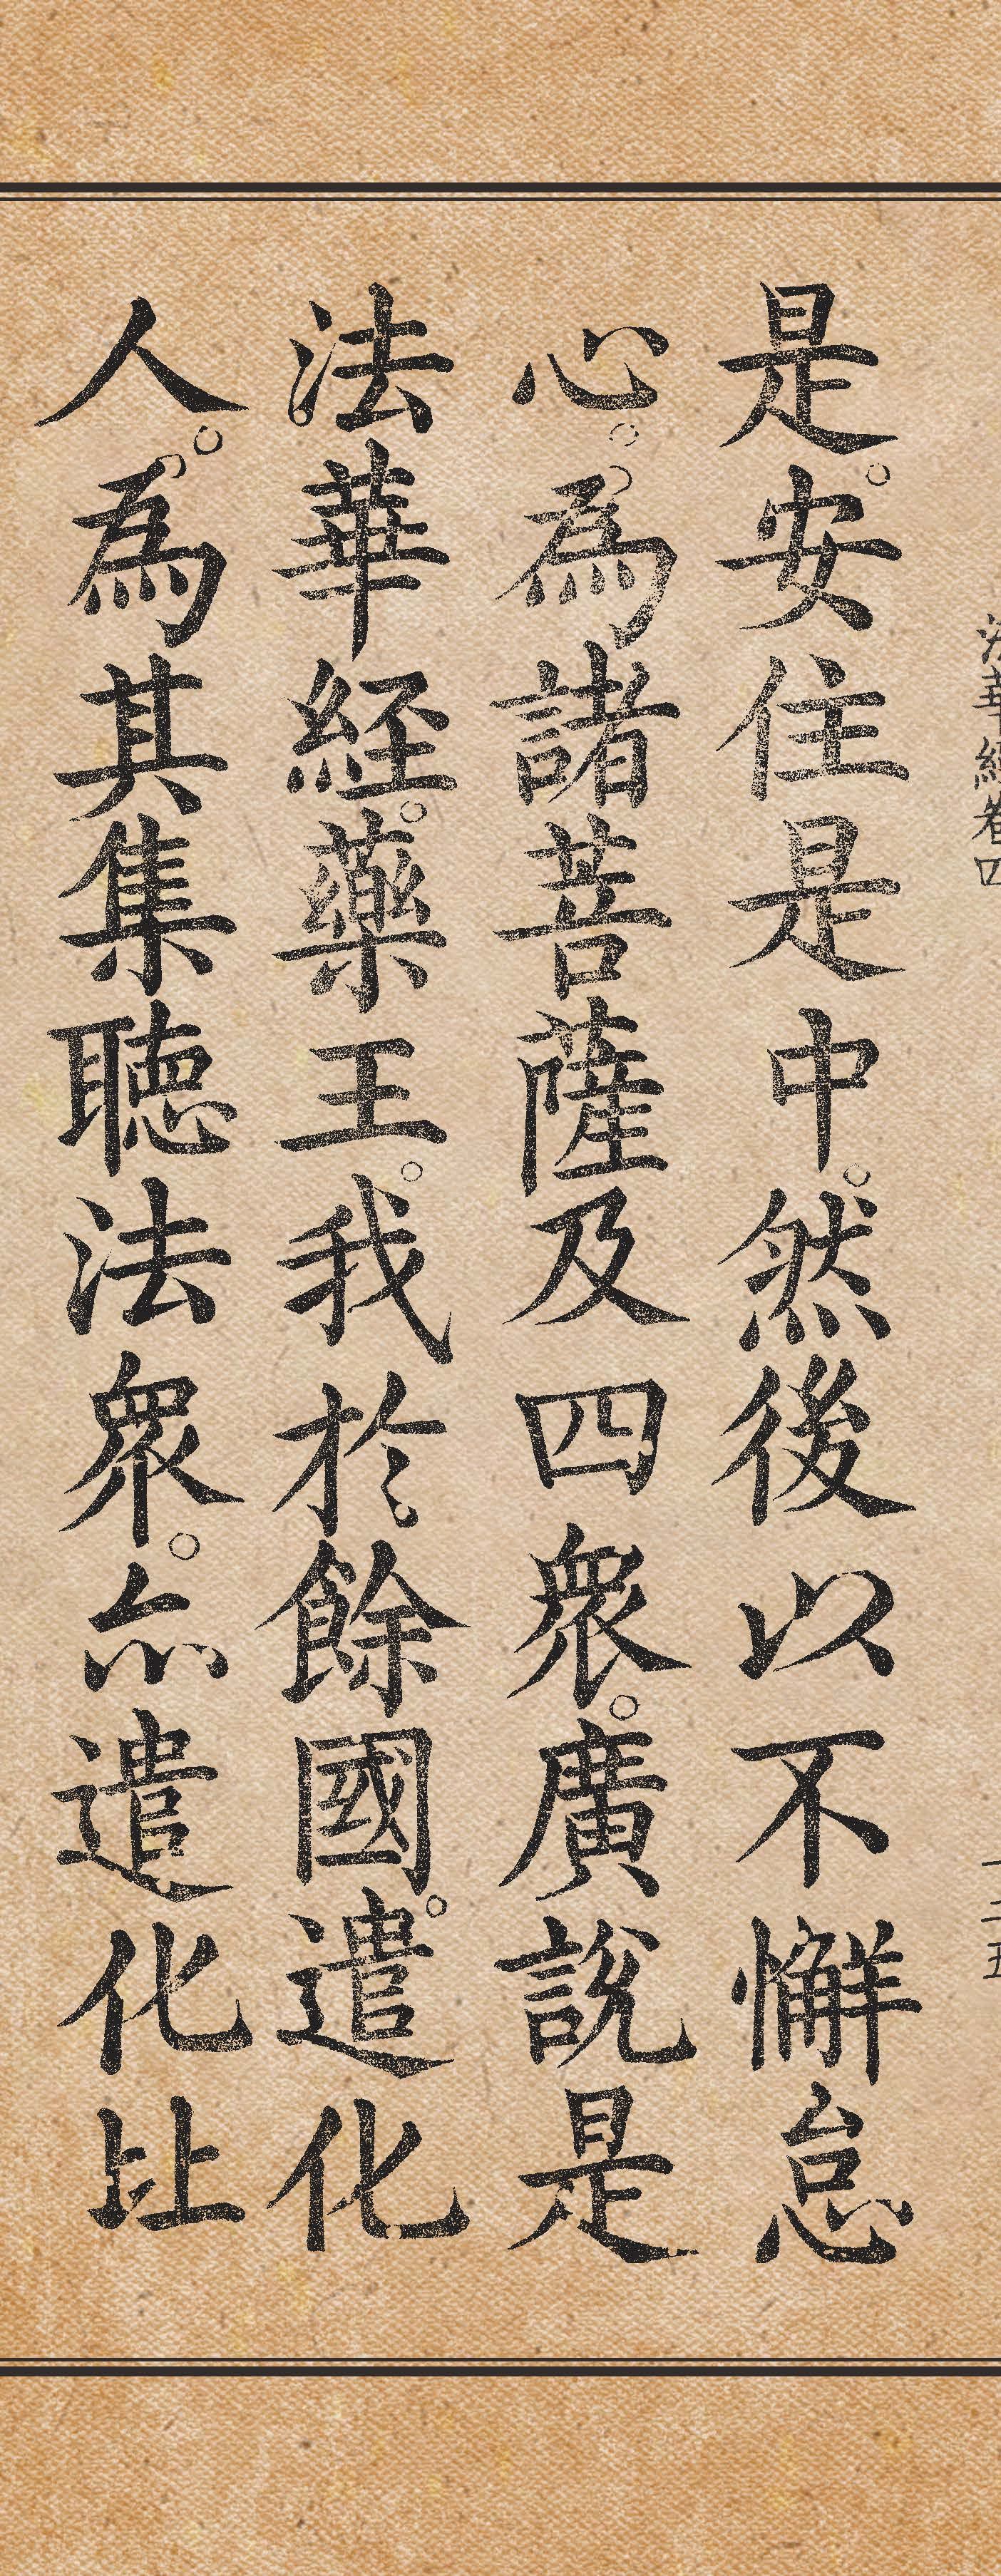 法華經卷四
十五
是。安住是中。然後以不懈怠
心。為諸菩薩及四眾。廣說是
法華経。藥王。我於餘國。遣化
人。為其集聽法眾。亦遣化比